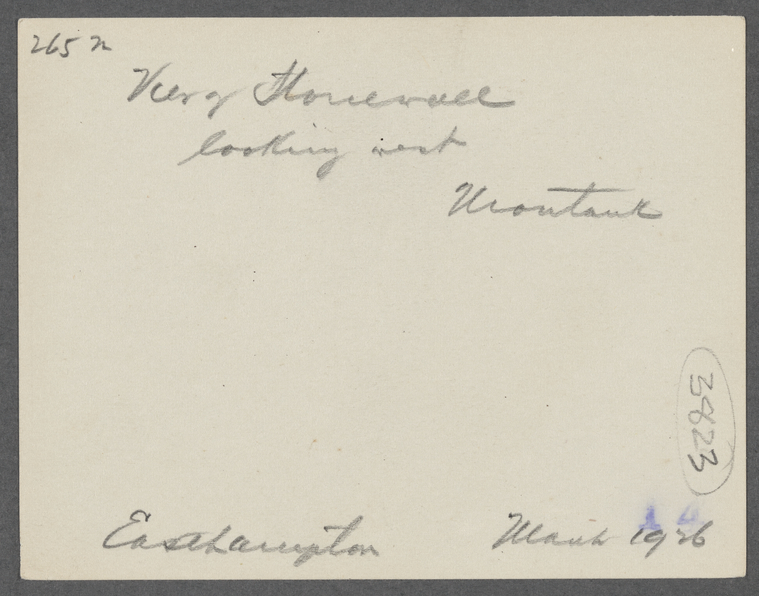 265 n
View of Stonewall
looking west
Montauk
3823
Easthampton March 1926